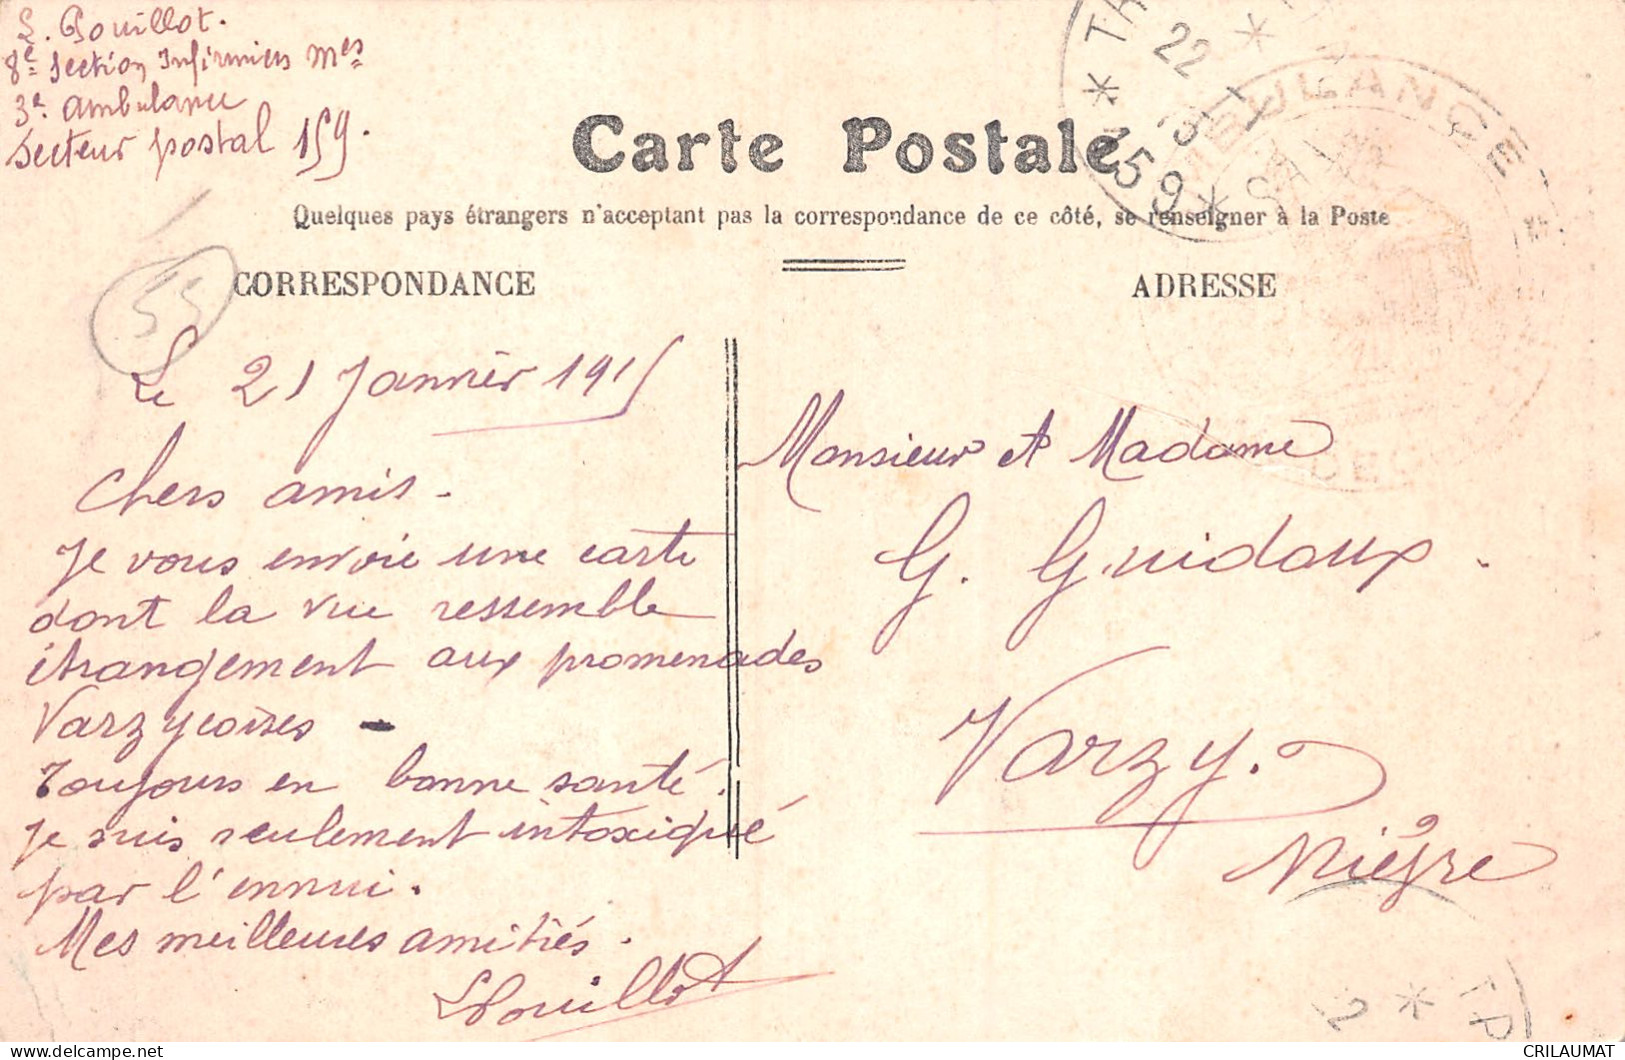 L. Pouillot.
8e Section Infirmiers Mres
3e ambulance
Secteur postal 159.
Carte Postale
Quelques pays étrangers n'acceptant pas la correspondance de ce côté, se renseigner à la Poste
CORRESPONDANCE
ADRESSE
55
Le 21 Janvier 1915
Chers amis -
Je vous envoie une carte
dont la vue ressemble
étrangement aux promenades
Varzycoises -
Toujours en bonne santé.
Je suis seulement intoxiqué
par l'ennui.
Mes meilleures amitiés.
LPouillot
Monsieur et Madame
G. Guidoux.
Varzy.
Nièvre
* 159 *
22
AMBULANCE
CRILAUMAT